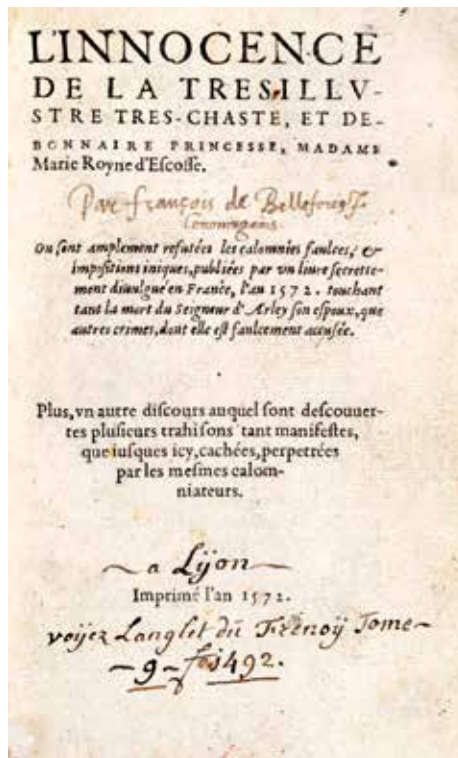 L'INNOCENCE
DE LA TRESILLV-
STRE TRES-CHASTE, ET DE-
BONNAIRE PRINCESSE, MADAME
Marie Royne d'Escosse.
Par françois de Belleforest
Ou sont amplement refutées les calomnies faulces, &
impositions iniques, publiées par vn liure secrette-
ment diuulgué en France, l'an 1572. touchant
tant la mort du Seigneur d'Arley son espoux, que
autres crimes, dont elle est faulcement accusée.
Plus, vn autre discours auquel sont descouuer-
tes plusieurs trahisons tant manifestes,
que iusques icy, cachées, perpetrées
par les mesmes calom-
niateurs.
a Lyon
Imprimé l'an 1572.
voyez Langlet du Fresnoÿ Tome
9 492.